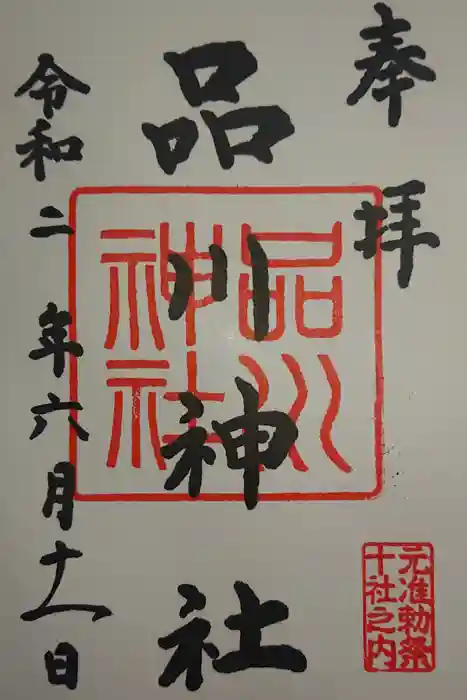 奉拝
品川神社
品川神社
元准勅祭
十社之内
令和二年六月十一日